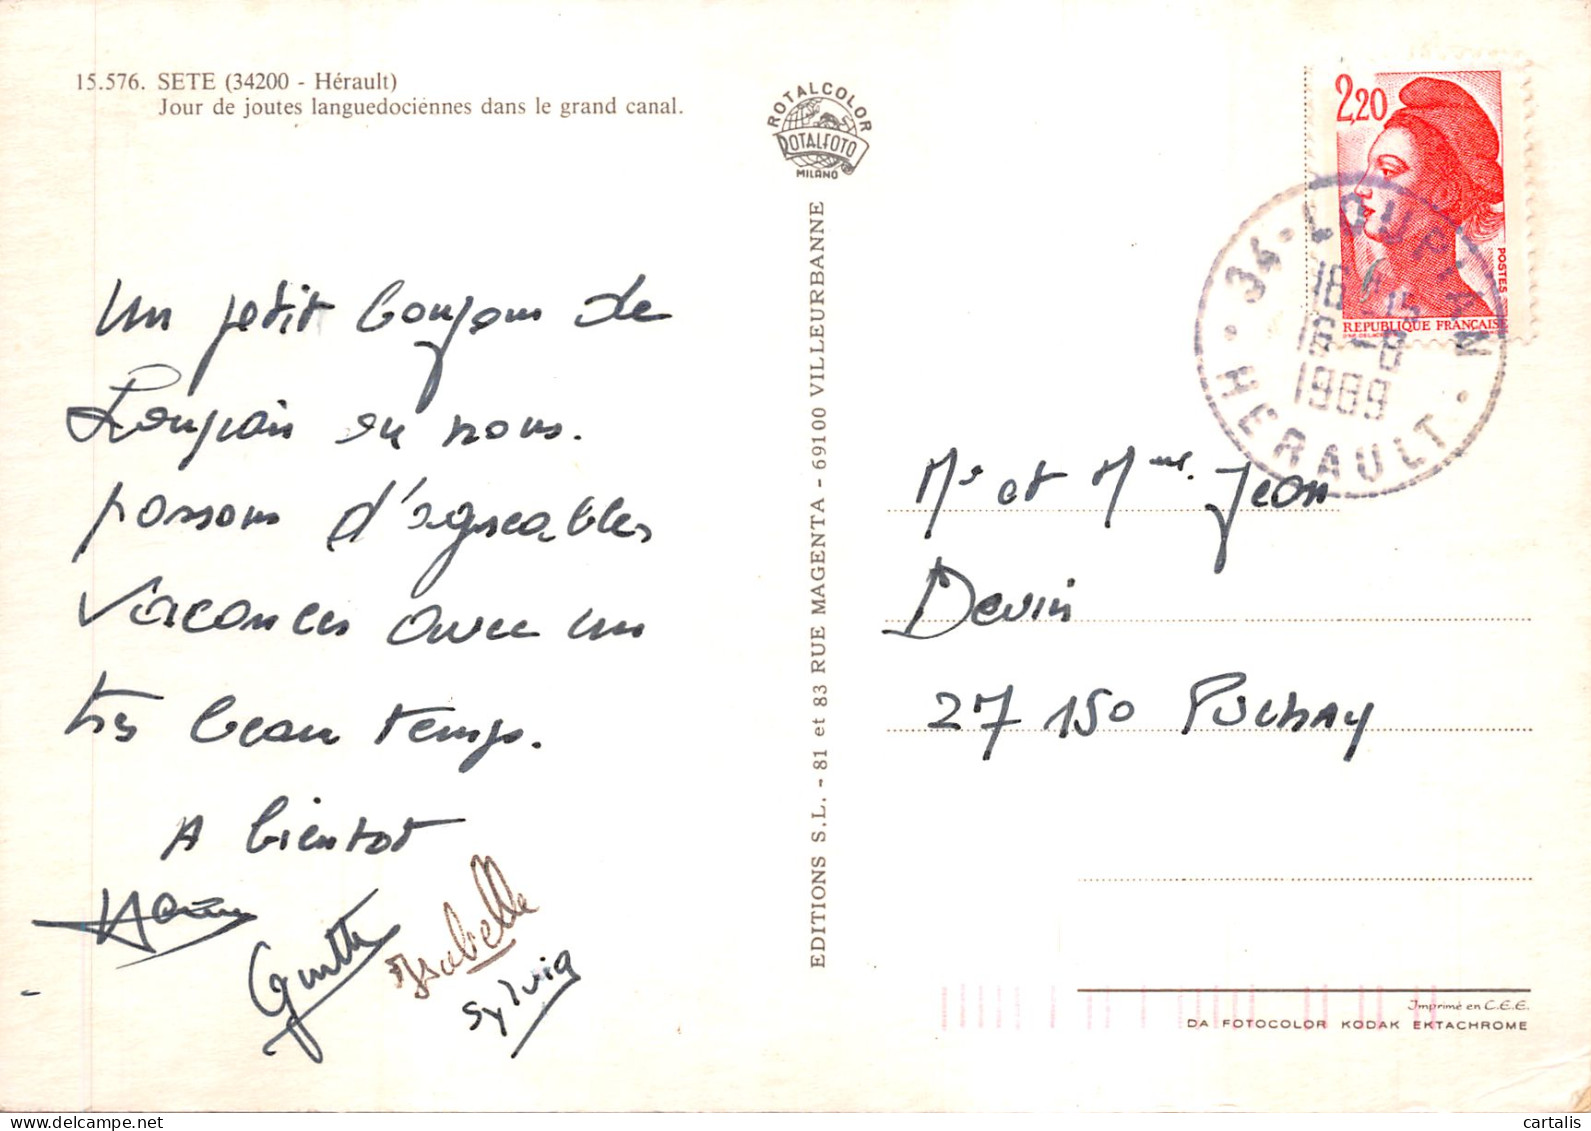 15.576. SETE (34200 - Hérault)
Jour de joutes languedociennes dans le grand canal.
ROTALCOLOR
ROTALFOTO
MILANO
Un petit bonjour de
Loupian ou nous.
passons d'agreables
vacances avec un
très beau temps.
A bientot
Isabelle
Sylvia
EDITIONS S.L. - 81 et 83 RUE MAGENTA - 69100 VILLEURBANNE
2,20
POSTES
REPUBLIQUE FRANÇAISE
34 - LOUPIAN
16 H 15
16 - 8
1989
HERAULT
Mr et Mme Jean
Devin
27 150 Puchay
Imprimé en C.E.E.
DA FOTOCOLOR KODAK EKTACHROME
cartalis